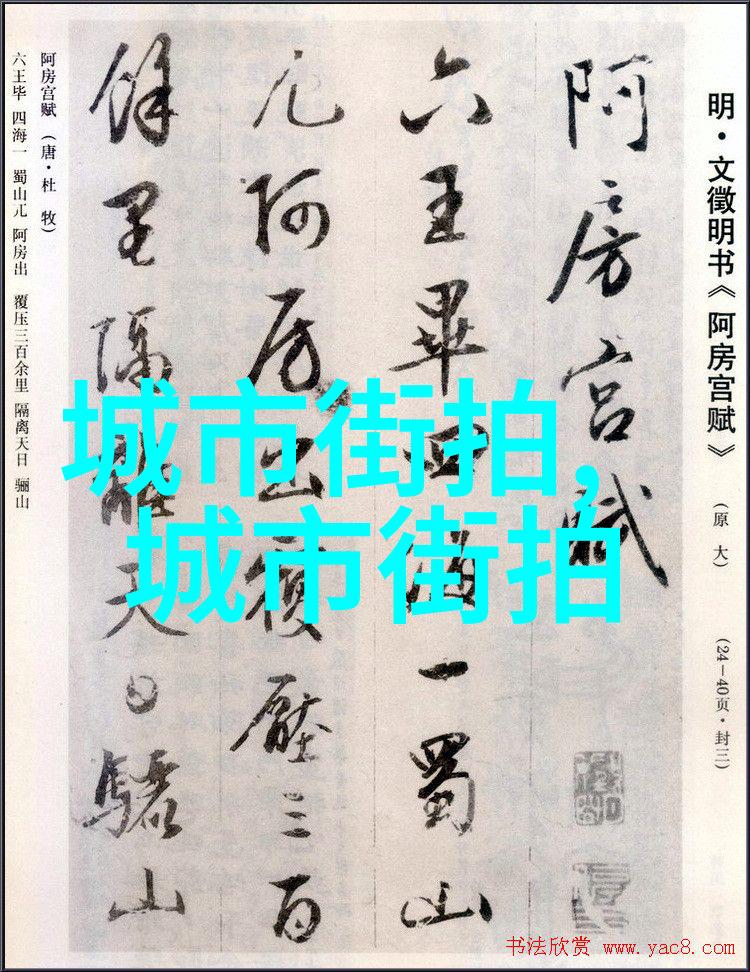 明·文徵明书《阿房宫赋》 (原大) (24—40页·封三)
阿房宫赋
六王畢四海一蜀山
兀阿房出覆壓三百
餘里隔離天日驪山
阿房宫赋（唐·杜 牧）
六王毕 四海一 蜀山兀 阿房出 覆压三百余里 隔离天日 骊山
城市街拍,
城市街拍
书法欣赏 www.yac8.com